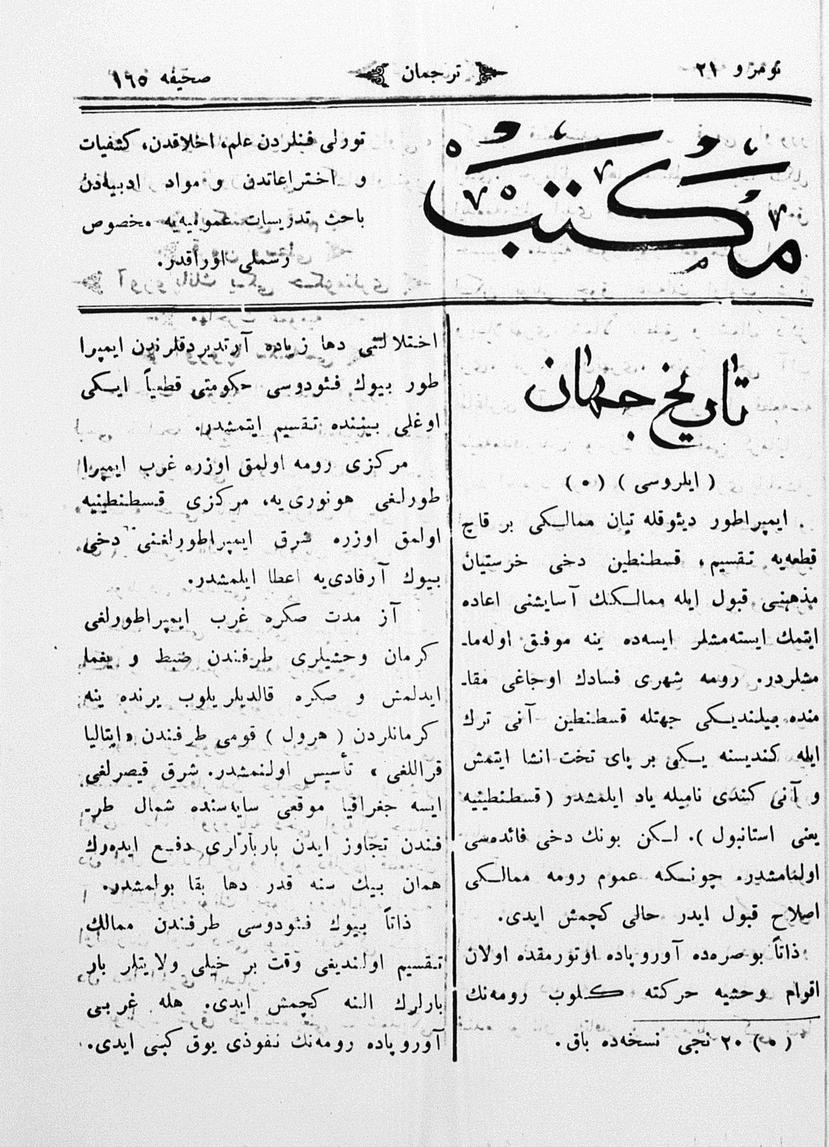 نومرو ٢١
ترجمان
صحيفه ١٦٥
مكتب
تورلى فنلردن علم، اخلاقدن، كشفيات
و اختراعاتدن و مواد ادبيه‌دن
باحث تدريسات عموميه‌يه مخصوص
رسملى اوراقدر.
تاريخ جهان
(ايلروسى) (٥)
ايمپراطور ديئوقله تيان ممالكى بر قاچ
قطعه‌يه تقسيم، قسطنطين دخى خرستيان
مذهبنى قبول ايله ممالكنك آسايشنى اعاده
ايتمك ايسته‌مشلر ايسه‌ده ينه موفق اوله‌ما-
مشلردر. رومه شهرى فسادك اوجاغى مقا-
منده بيلنديكى جهتله قسطنطين آنى ترك
ايله كنديسنه يكى بر پاى تخت انشا ايتمش
و آنى كندى ناميله ياد ايلمشدر (قسطنطينيه
يعنى استانبول). لكن بونك دخى فائده‌سى
اولنامشدر. چونكه عموم رومه ممالكى
اصلاح قبول ايدر حالى كچمش ايدى.
ذاتاً بوصره‌ده آوروپاده اوتورمقده اولان
اقوام وحشيه حركته كلوب رومه‌نك
(٥) ٢٠ نجى نسخه‌ده باق.
اختلالنى دها زياده آرتديردقلرندن ايمپرا
طور بيوك فئودوسى حكومتى قطعياً ايكى
اوغلى بيننده تقسيم ايتمشدر.
مركزى رومه اولمق اوزره غرب ايمپرا
طورلغى هونورى‌يه، مركزى قسطنطينيه
اولمق اوزره شرق ايمپراطورلغنى دخى
بيوك آرقادى‌يه اعطا ايلمشدر.
آز مدت صكره غرب ايمپراطورلغى
كرمان وحشيلرى طرفندن ضبط و يغما
ايدلمش و صكره قالديلريلوب يرنده ينه
كرمانلردن (هرول) قومى طرفندن «ايتاليا
قراللغى» تأسيس اولنمشدر. شرق قيصرلغى
ايسه جغرافيا موقعى سايه‌سنده شمال طر-
فندن تجاوز ايدن بارباراری دفع ايده‌رك
همان بيك سنه قدر دها بقا بولمشدر.
ذاتاً بيوك فئودوسى طرفندن ممالك
تقسيم اولنديغى وقت بر خيلى ولايتلر بار
بارلرك النه كچمش ايدى. هله غربى
آوروپاده رومه‌نك نفوذى يوق كبى ايدى.